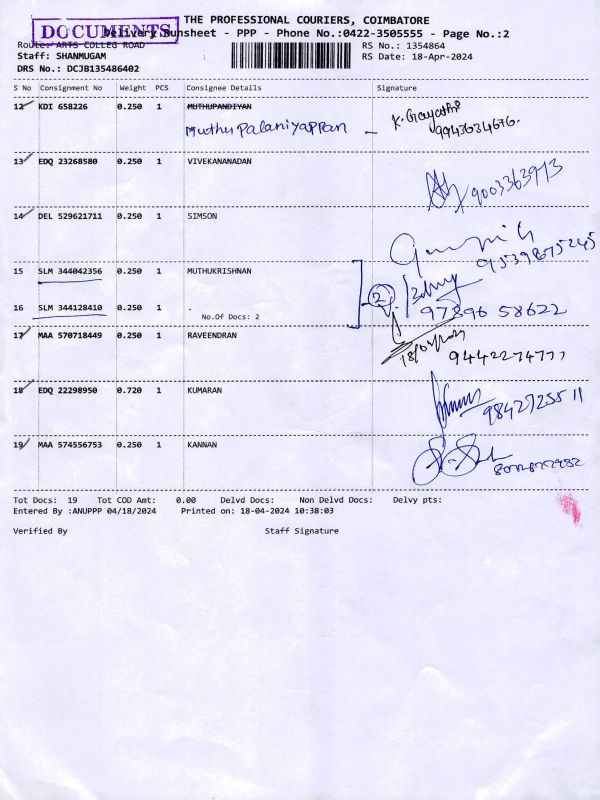 THE PROFESSIONAL COURIERS, COIMBATORE
DOCUMENTS
Delivery Runsheet - PPP - Phone No.:0422-3505555 - Page No.:2
Route: ARTS COLLEG ROAD RS No.: 1354864
Staff: SHANMUGAM RS Date: 18-Apr-2024
DRS No.: DCJB135486402
S No Consignment No Weight PCS Consignee Details Signature
12 KDI 658226 0.250 1 MUTHUPANDIYAN
Muthu Palaniyappan - K. Gayathri
9943634676
13 EDQ 23268580 0.250 1 VIVEKANANADAN
9003363913
14 DEL 529621711 0.250 1 SIMSON
9539875245
15 SLM 344042356 0.250 1 MUTHUKRISHNAN
2
16 SLM 344128410 0.250 1 . 97896 58622
No.Of Docs: 2
17 MAA 570718449 0.250 1 RAVEENDRAN
9442274777
18 EDQ 22298950 0.720 1 KUMARAN
9842725511
19 MAA 574556753 0.250 1 KANNAN
Tot Docs: 19 Tot COD Amt: 0.00 Delvd Docs: Non Delvd Docs: Delvy pts:
Entered By :ANUPPP 04/18/2024 Printed on: 18-04-2024 10:38:03
Verified By Staff Signature